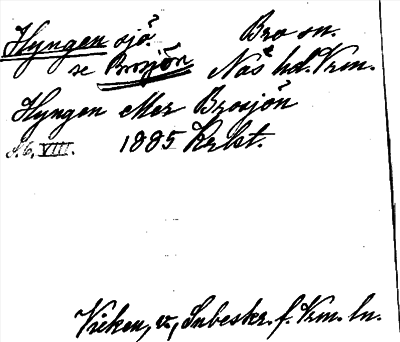 Hyngen sjö. Bro sn.
se Brosjön Näs hd. Vrm.
Hyngen eller Brosjön
S. 6, VIII. 1885 Krkt.
Vicken, v., Jubeskr. f. Vrm. ln.